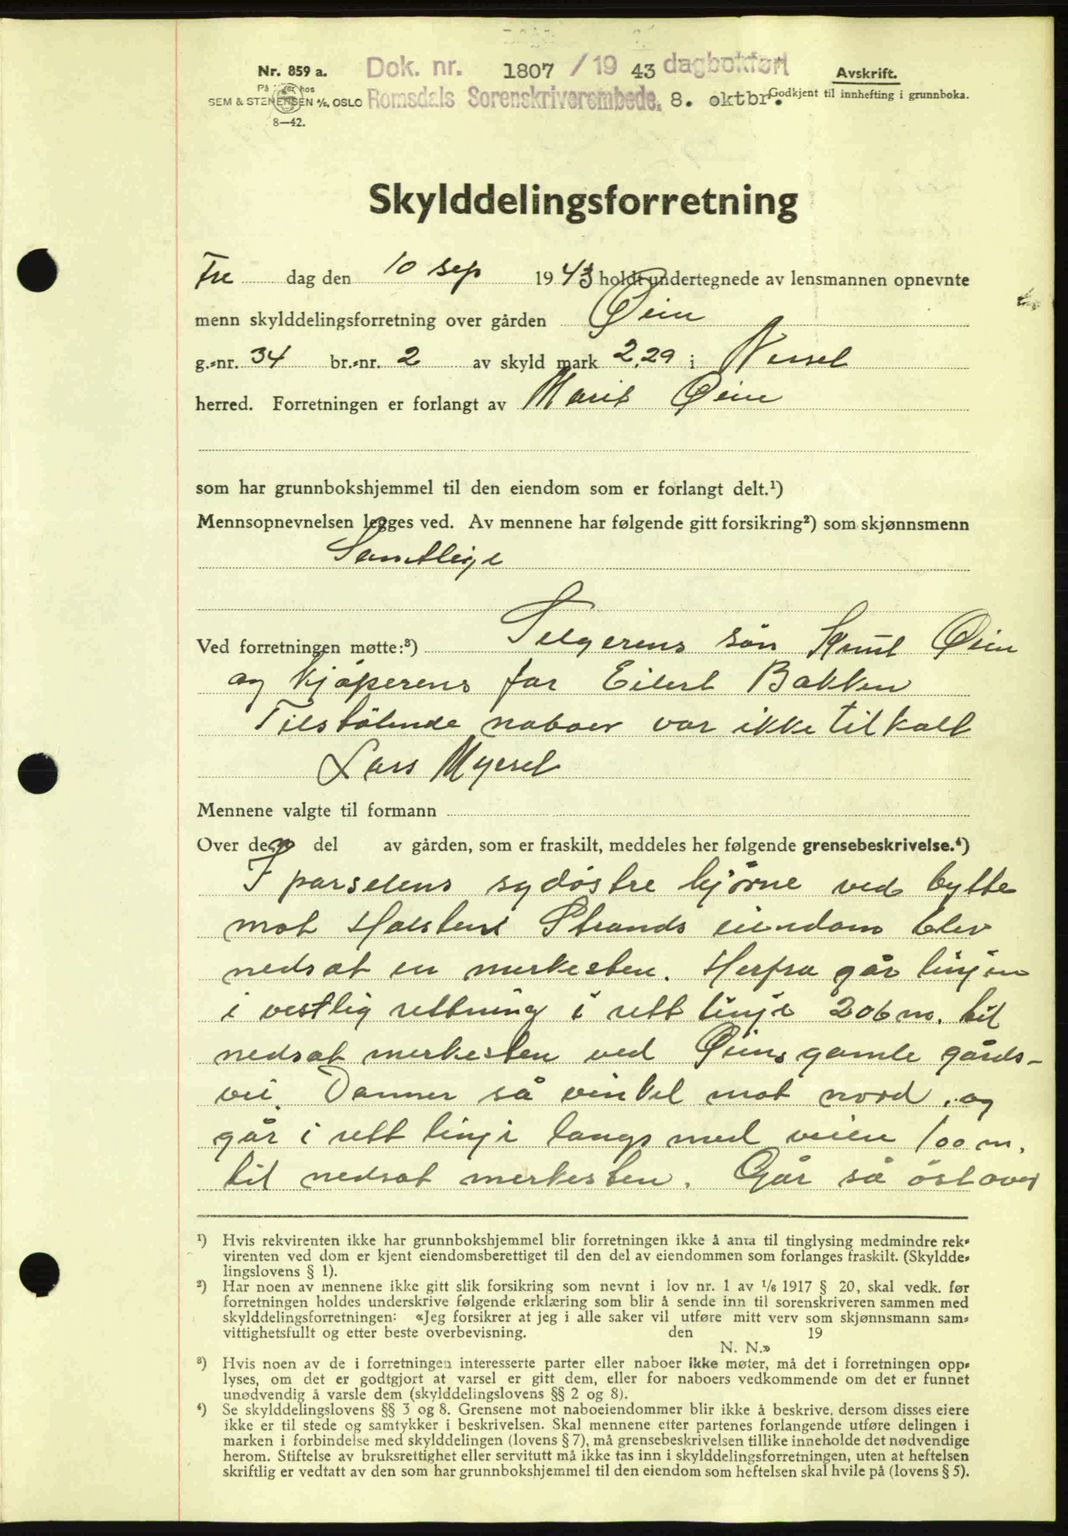 Nr. 859 a.
På lager hos
SEM & STENERSEN A/S, OSLO
8—42.
Dok. nr. 1807 / 19 43 dagbokført
Romsdals Sorenskriverembede. 8. oktbr.
Avskrift.
Godkjent til innhefting i grunnboka.
Skylddelingsforretning
Fre dag den 10 sep 1943 holdt undertegnede av lensmannen opnevnte
menn skylddelingsforretning over gården Øein
g.-nr. 34 br.-nr. 2 av skyld mark 2,29 i Nesset
herred. Forretningen er forlangt av Marit Øein
som har grunnbokshjemmel til den eiendom som er forlangt delt.¹)
Mennsopnevnelsen legges ved. Av mennene har følgende gitt forsikring²) som skjønnsmenn
Samtlige
Ved forretningen møtte:³) Selgerens søn Knut Øein
og kjøperens far Eilert Bakken
Tilstøtende naboer var ikke tilkalt
Lars Myset
Mennene valgte til formann
Over den del av gården, som er fraskilt, meddeles her følgende grensebeskrivelse.⁴)
I parselens sydøstre hjørne ved bytte
mot Halsten Strands eiendom blev
nedsat en merkesten. Herfra går linjen
i vestlig rettning i rett linje 206 m. til
nedsat merkesten ved Øeins gamle gårds-
vei. Danner så vinkel mot nord, og
går i rett linje langs med veien 100 m.
til nedsat merkesten. Går så östover
¹) Hvis rekvirenten ikke har grunnbokshjemmel blir forretningen ikke å anta til tinglysing medmindre rek-
virenten ved dom er kjent eiendomsberettiget til den del av eiendommen som forlanges fraskilt. (Skyldde-
lingslovens § 1).
²) Har noen av mennene ikke gitt slik forsikring som nevnt i lov nr. 1 av 1/6 1917 § 20, skal vedk. før
forretningen holdes underskrive følgende erklæring som blir å sende inn til sorenskriveren sammen med
skylddelingsforretningen: «Jeg forsikrer at jeg i alle saker vil utføre mitt verv som skjønnsmann sam-
vittighetsfullt og etter beste overbevisning. den 19
N. N.»
³) Hvis noen av de i forretningen interesserte parter eller naboer ikke møter, må det i forretningen opp-
lyses, om det er godtgjort at varsel er gitt dem, eller for naboers vedkommende om det er funnet
unødvendig å varsle dem (skylddelingslovens §§ 2 og 8).
⁴) Se skylddelingslovens §§ 3 og 8. Grensene mot naboeiendommer blir ikke å beskrive, dersom disses eiere
ikke er til stede og samtykker i beskrivelsen. Skal mennene etter partenes forlangende utføre delingen i
marken i forbindelse med skylddelingen (lovens § 7), må grensebeskrivelsen tillike inneholde det nødvendige
herom. Stiftelse av bruksrettighet eller servitutt må ikke tas inn i skylddelingsforretningen, uten at heftelsen
skriftlig er vedtatt av den som har grunnbokshjemmel til den eiendom som heftelsen skal hvile på (lovens § 5).